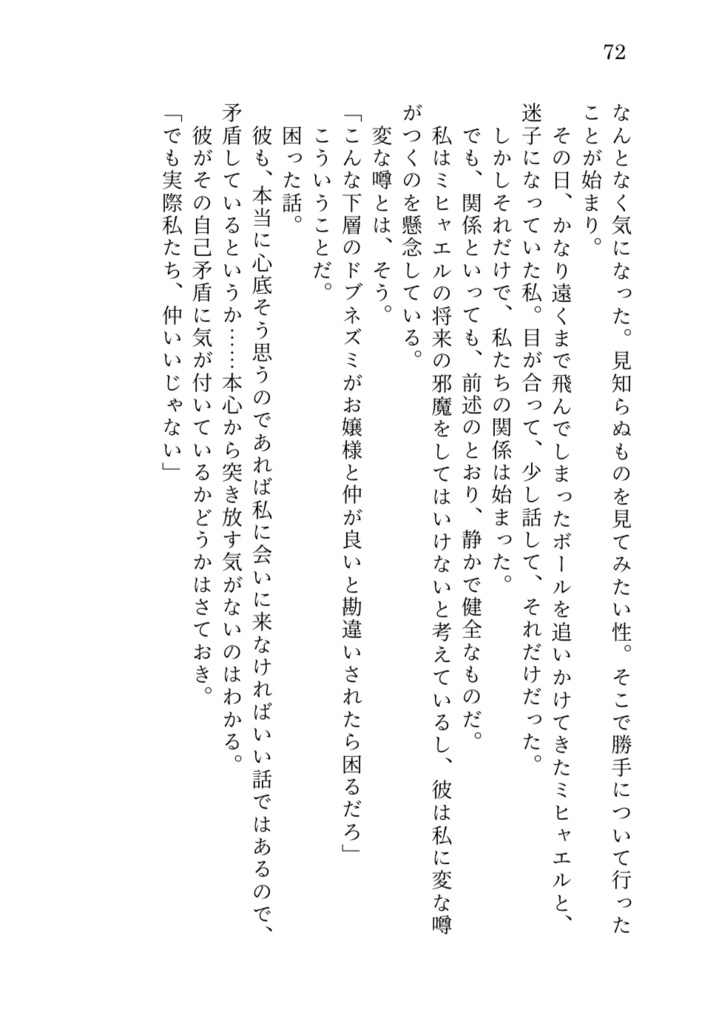 72
なんとなく気になった。見知らぬものを見てみたい性。そこで勝手について行った
ことが始まり。
　その日、かなり遠くまで飛んでしまったボールを追いかけてきたミヒャエルと、
迷子になっていた私。目が合って、少し話して、それだけだった。
　しかしそれだけで、私たちの関係は始まった。
　でも、関係といっても、前述のとおり、静かで健全なものだ。
　私はミヒャエルの将来の邪魔をしてはいけないと考えているし、彼は私に変な噂
がつくのを懸念している。
　変な噂とは、そう。
「こんな下層のドブネズミがお嬢様と仲が良いと勘違いされたら困るだろ」
　こういうことだ。
　困った話。
　彼も、本当に心底そう思うのであれば私に会いに来なければいい話ではあるので、
矛盾しているというか……本心から突き放す気がないのはわかる。
　彼がその自己矛盾に気が付いているかどうかはさておき。
「でも実際私たち、仲いいじゃない」